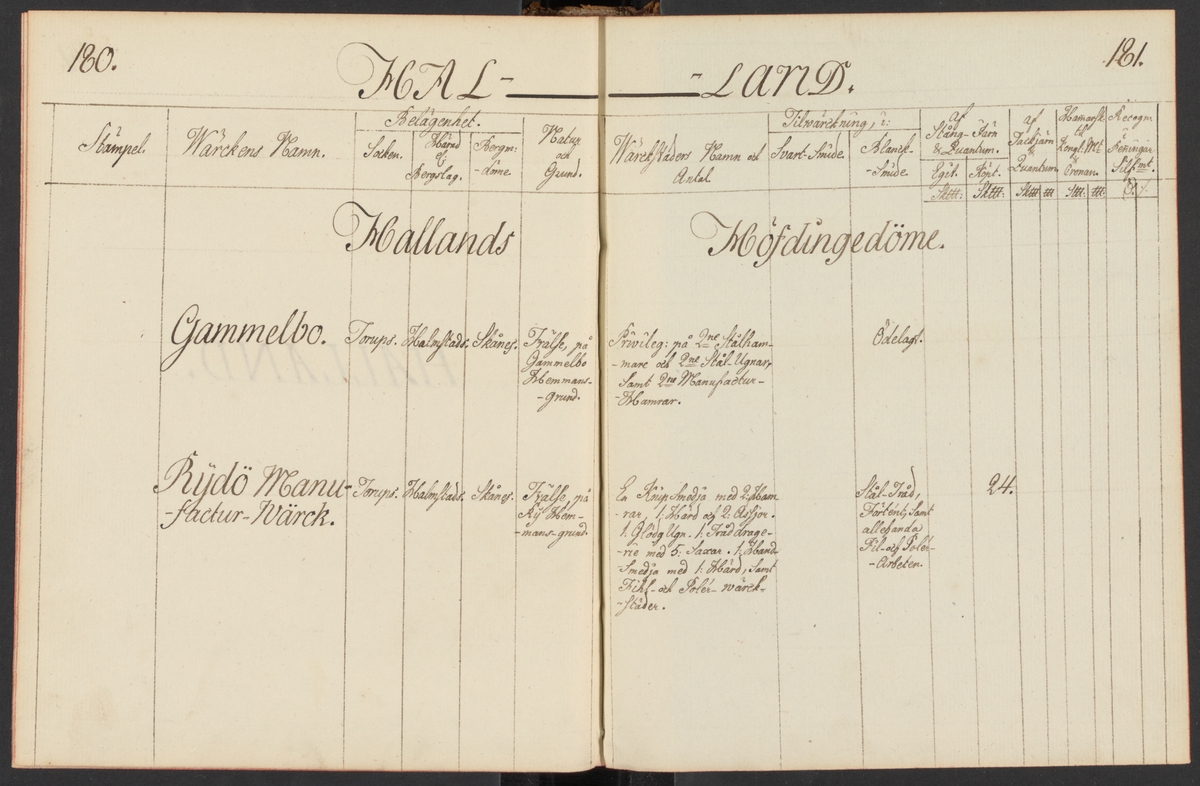 180.
181.
HAL-
-LAND.
Stämpel.
Wärckens Namn.
Belägenhet.
Socken.
Härad
el.
Bergslag.
Bergm:
-döme
Natur
och
Grund.
Wärckstäders Namn och
Antal.
Tilwärckning, i:
Svart-Smide.
Blanck-
-Smide.
af
Stång-Järn
& Quantum.
Egit.
Köpt.
Sktt:
Sktt:
af
Tackjärn
Quantum.
Hamarsk
til
Kongl: Mt
&
Cronan.
Recogn:
Penningar
Silf:mt.
Hallands
Höfdingedöme.
Gammelbo.
Torups.
Halmstads.
Skånes.
Frälse, på
Gammelbo
Hemmans-
-Grund.
Privileg: på 2ne Stålham-
-mare och 2ne Stål-Ugnar,
samt 2ne Manufactur-
-Hamrar.
Ödelagt.
Rydö Manu-
-factur-Wärck.
Torups.
Halmstads.
Skånes.
Frälse, på
Ry Hem-
-mans-grund.
En Knip Smedja med 2: Ham
-rar, 1: Härd och 2: Äsjor.
1: GlödgUgn. 1: Tråddrage-
-rie med 5: Saxar. 1: Hand
Smedja med 1: Härd, samt
Fihl- och Poler- wärck-
-städer.
Stål-Tråd,
Förtent, samt
allehanda
Fil- och Poler-
-Arbeten.
24.